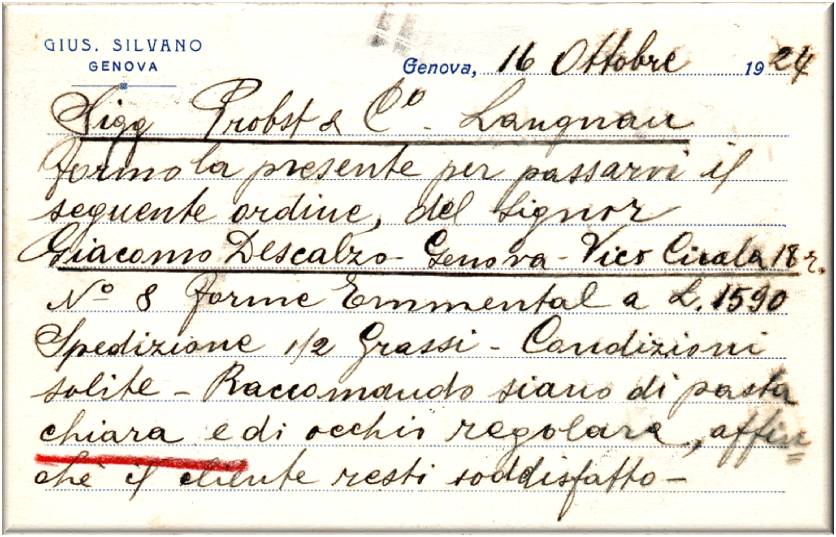 GIUS. SILVANO
GENOVA
Genova, 16 Ottobre 1924
Sigg Probst & Cº - Langnau
Formo la presente per passarvi il
seguente ordine, del Signor
Giacomo Descalzo - Genova - Vico Cicala 18 r.
Nº 8 forme Emmental a L. 1590
Spedizione 1/2 Grassi - Condizioni
solite - Raccomando siano di pasta
chiara e di occhio regolare, affin=
chè il cliente resti soddisfatto -